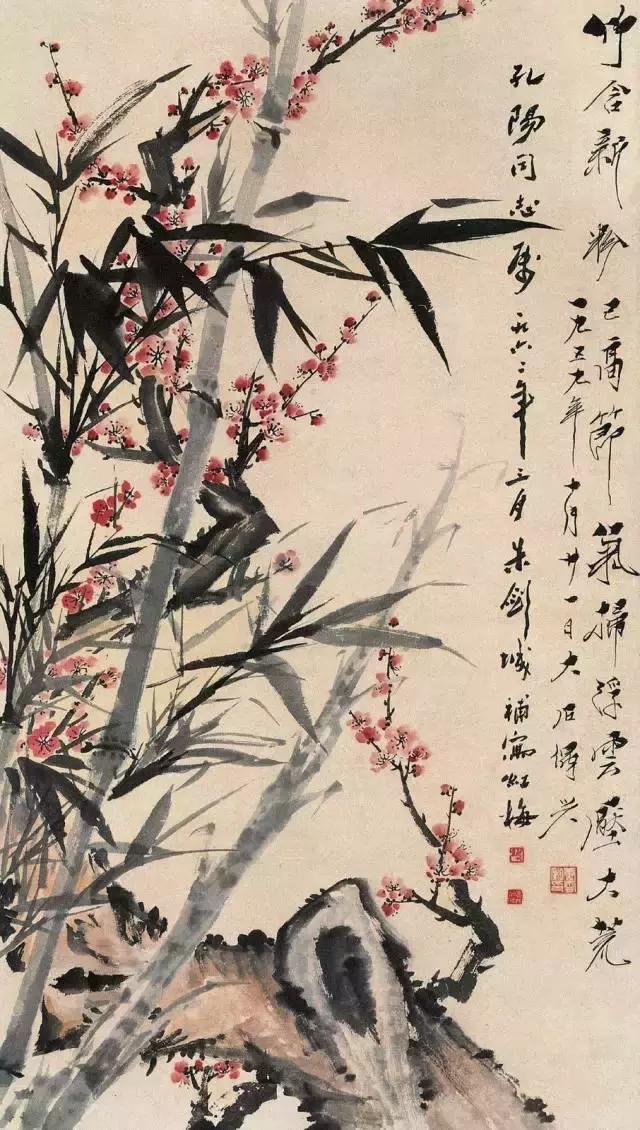 竹含新粉已高節氣掃浮雲壓大荒
一九五九年十月廿一日大石兴
孔陽同志屬一九六二年三月朱劍城補寫紅梅